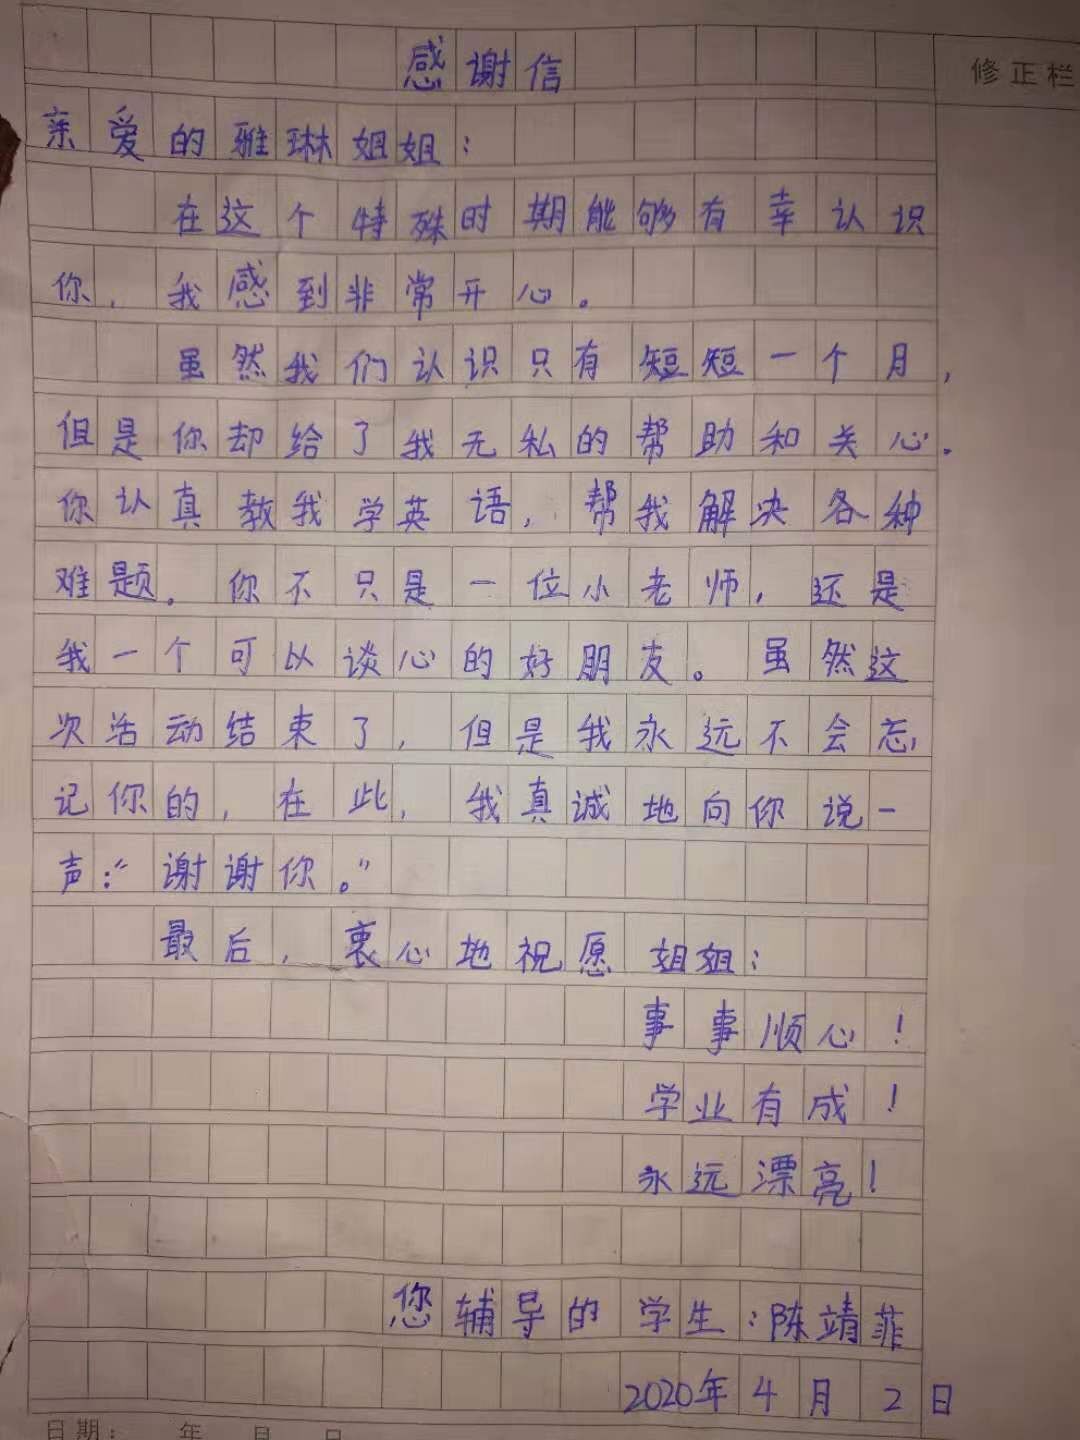 感谢信
修正栏
亲爱的雅琳姐姐：
在这个特殊时期能够有幸认识
你，我感到非常开心。
虽然我们认识只有短短一个月，
但是你却给了我无私的帮助和关心。
你认真教我学英语，帮我解决各种
难题。你不只是一位小老师，还是
我一个可以谈心的好朋友。虽然这
次活动结束了，但是我永远不会忘
记你的，在此，我真诚地向你说一
声：“谢谢你。”
最后，衷心地祝愿姐姐：
事事顺心！
学业有成！
永远漂亮！
您辅导的学生：陈靖菲
2020年4月2日
日期： 年 月 日